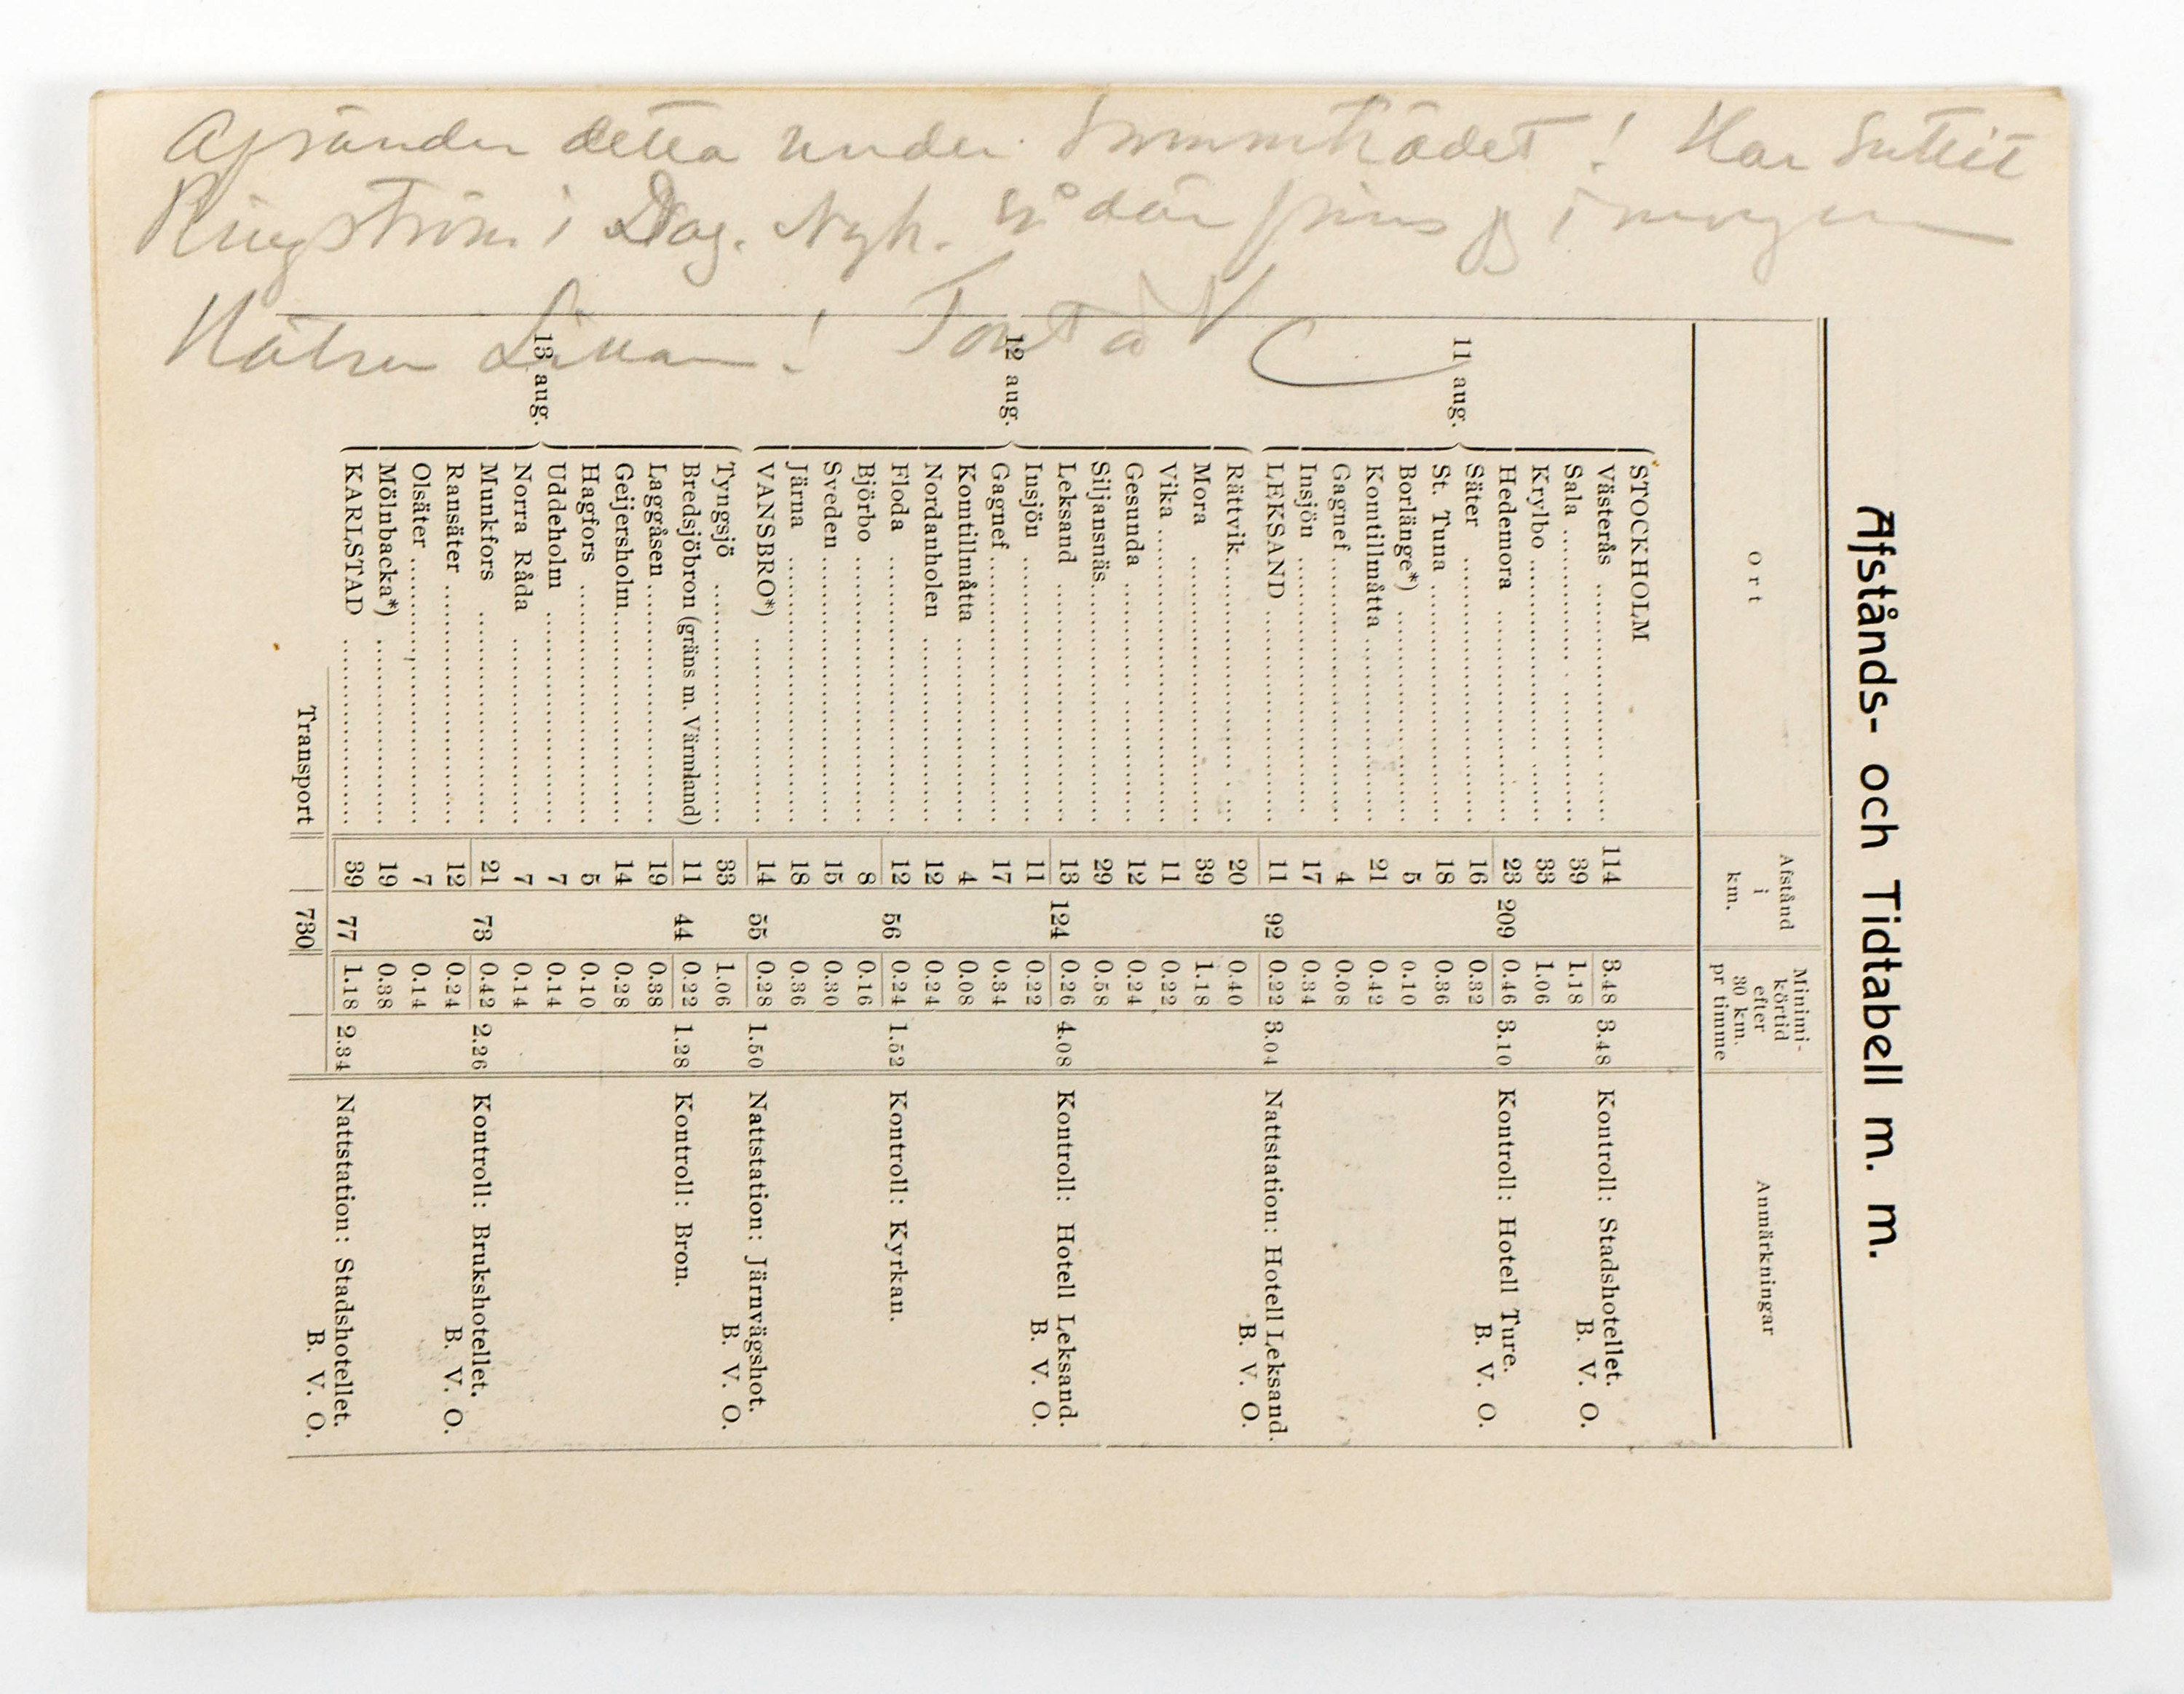 Afsänder detta under Sammträdet! Har Suttit
Ringström i Dag. Nyh. så där finns jg i morgen
Hälsn
Afstånds- och Tidtabell m. m.
Ort Afstånd i km. Minimi-körtid efter 30 km. pr timme Anmärkningar
11 aug.
STOCKHOLM
Västerås 114 3.48 3.48 Kontroll: Stadshotellet. B. V. O.
Sala 39 1.18
Krylbo 33 1.06
Hedemora 23 209 0.46 3.10 Kontroll: Hotell Ture. B. V. O.
Säter 16 0.32
St. Tuna 18 0.36
Borlänge*) 5 0.10
Komtillmåtta 21 0.42
Gagnef 4 0.08
Insjön 17 0.34
LEKSAND 11 92 0.22 3.04 Nattstation: Hotell Leksand. B. V. O.
12 aug.
Rättvik 20 0.40
Mora 39 1.18
Vika 11 0.22
Gesunda 12 0.24
Siljansnäs 29 0.58
Leksand 13 124 0.26 4.08 Kontroll: Hotell Leksand. B. V. O.
Insjön 11 0.22
Gagnef 17 0.34
Komtillmåtta 4 0.08
Nordanholen 12 0.24
Floda 12 56 0.24 1.52 Kontroll: Kyrkan.
Björbo 8 0.16
Sveden 15 0.30
Järna 18 0.36
VANSBRO*) 14 55 0.28 1.50 Nattstation: Järnvägshot. B. V. O.
13 aug.
Tyngsjö 33 1.06
Bredsjöbron (gräns m. Värmland) 11 44 0.22 1.28 Kontroll: Bron.
Laggåsen 19 0.38
Geijersholm 14 0.28
Hagfors 5 0.10
Uddeholm 7 0.14
Norra Råda 7 0.14
Munkfors 21 73 0.42 2.26 Kontroll: Brukshotellet. B. V. O.
Ransäter 12 0.24
Olsäter 7 0.14
Mölnbacka*) 19 0.38
KARLSTAD 39 77 1.18 2.34 Nattstation: Stadshotellet. B. V. O.
Transport 730